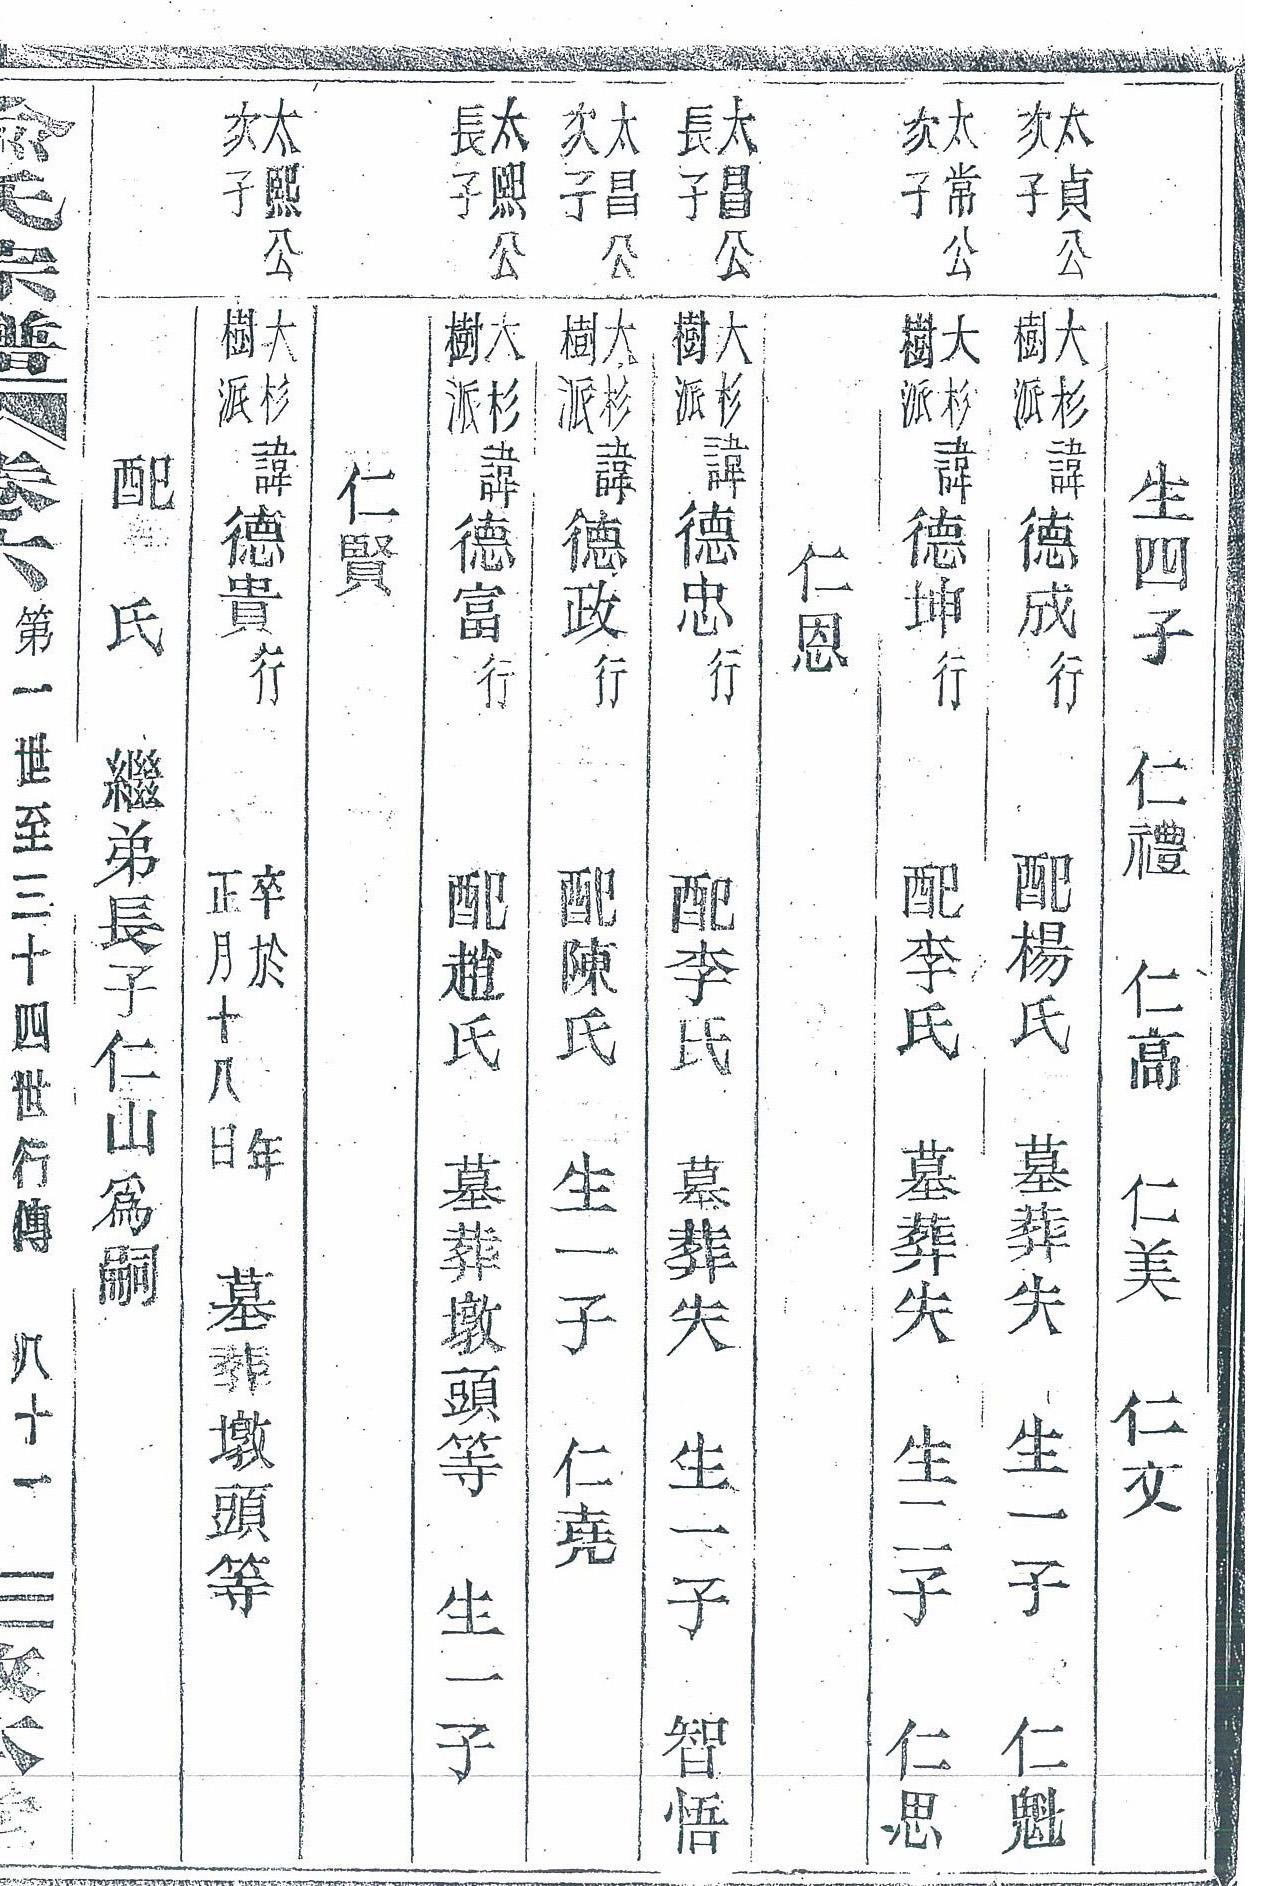 生四子 仁禮 仁高 仁美 仁文
太貞公
次子
大杉
樹派
諱德成行 配楊氏 墓葬失 生一子 仁魁
太常公
次子
大杉
樹派
諱德坤行 配李氏 墓葬失 生二子 仁思
仁恩
太昌公
長子
大杉
樹派
諱德忠行 配李氏 墓葬失 生一子 智悟
太昌公
次子
大杉
樹派
諱德政行 配陳氏 生一子 仁堯
太熙公
長子
大杉
樹派
諱德富行 配趙氏 墓葬墩頭等 生一子
仁賢
太熙公
次子
大杉
樹派
諱德貴行
卒於 年
正月十八日
墓葬墩頭等
配 氏 繼弟長子仁山爲嗣
俞氏宗譜 卷六 第一世至三十四世行傳 八十一